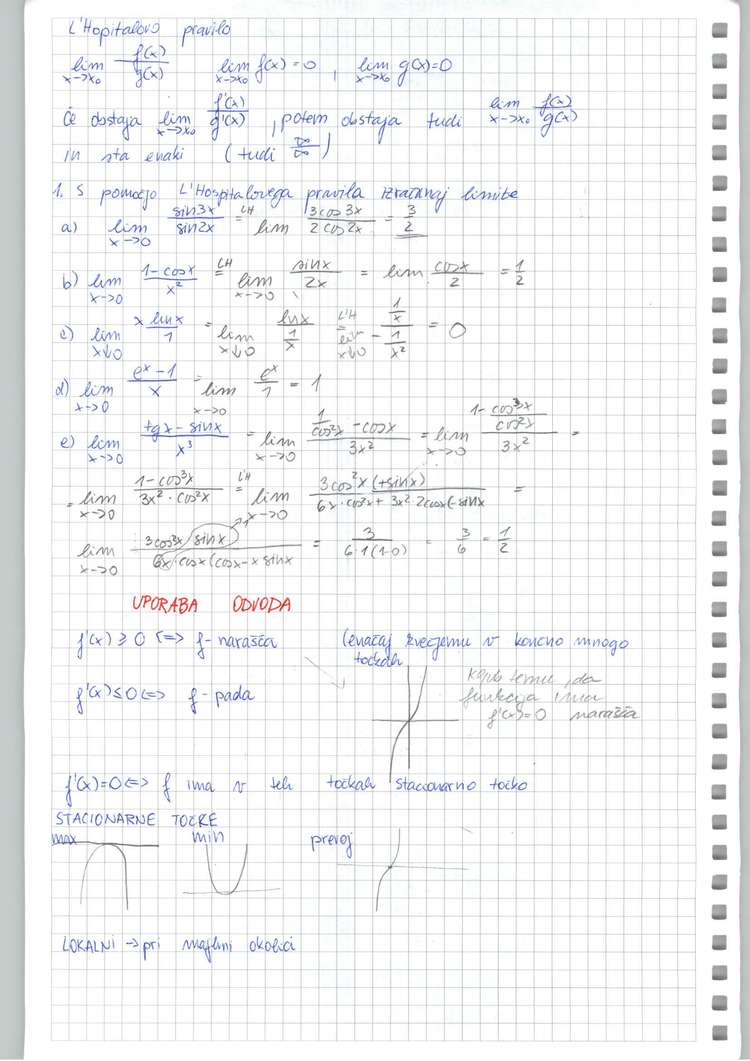 L'Hopitalovo pravilo
lim x->x₀ f(x)/g(x)   lim x->x₀ f(x)=0 , lim x->x₀ g(x)=0
Če obstaja lim x->x₀ f'(x)/g'(x) , potem obstaja tudi lim x->x₀ f(x)/g(x)
in sta enaki (tudi ∞/∞)
1. S pomočjo L'Hospitalovega pravila izračunaj limite
a) lim x->0 sin3x/sin2x =LH lim 3cos3x/2cos2x = 3/2
b) lim x->0 1-cosx/x² =LH lim x->0 sinx/2x = lim cosx/2 = 1/2
c) lim x↓0 x lnx/1 = lim x↓0 lnx/(1/x) =L'H lim x↓0 (1/x)/(-1/x²) = 0
d) lim x->0 eˣ-1/x = lim x->0 eˣ/1 = 1
e) lim x->0 tgx-sinx/x³ = lim x->0 (1/cos²x - cosx)/3x² = lim x->0 (1-cos³x/cos²x)/3x² =
= lim x->0 1-cos³x/3x²·cos²x =L'H lim x->0 3cos²x(+sinx)/6x·cos²x+3x²·2cosx(-sinx =
lim x->0 3cos²x(sinx)/6x·cosx(cosx-x sinx = 3/6·1(1-0) = 3/6 = 1/2
UPORABA ODVODA
f'(x)≥0 <=> f- narašča (enačaj kvečjemu v končno mnogo
točkah
f'(x)≤0 <=> f- pada
kljub temu, da
funkcija ima
f'(x)=0 narašča
f'(x)=0 <=> f ima v teh točkah stacionarno točko
STACIONARNE TOČKE
max min prevoj
LOKALNI -> pri majhni okolici